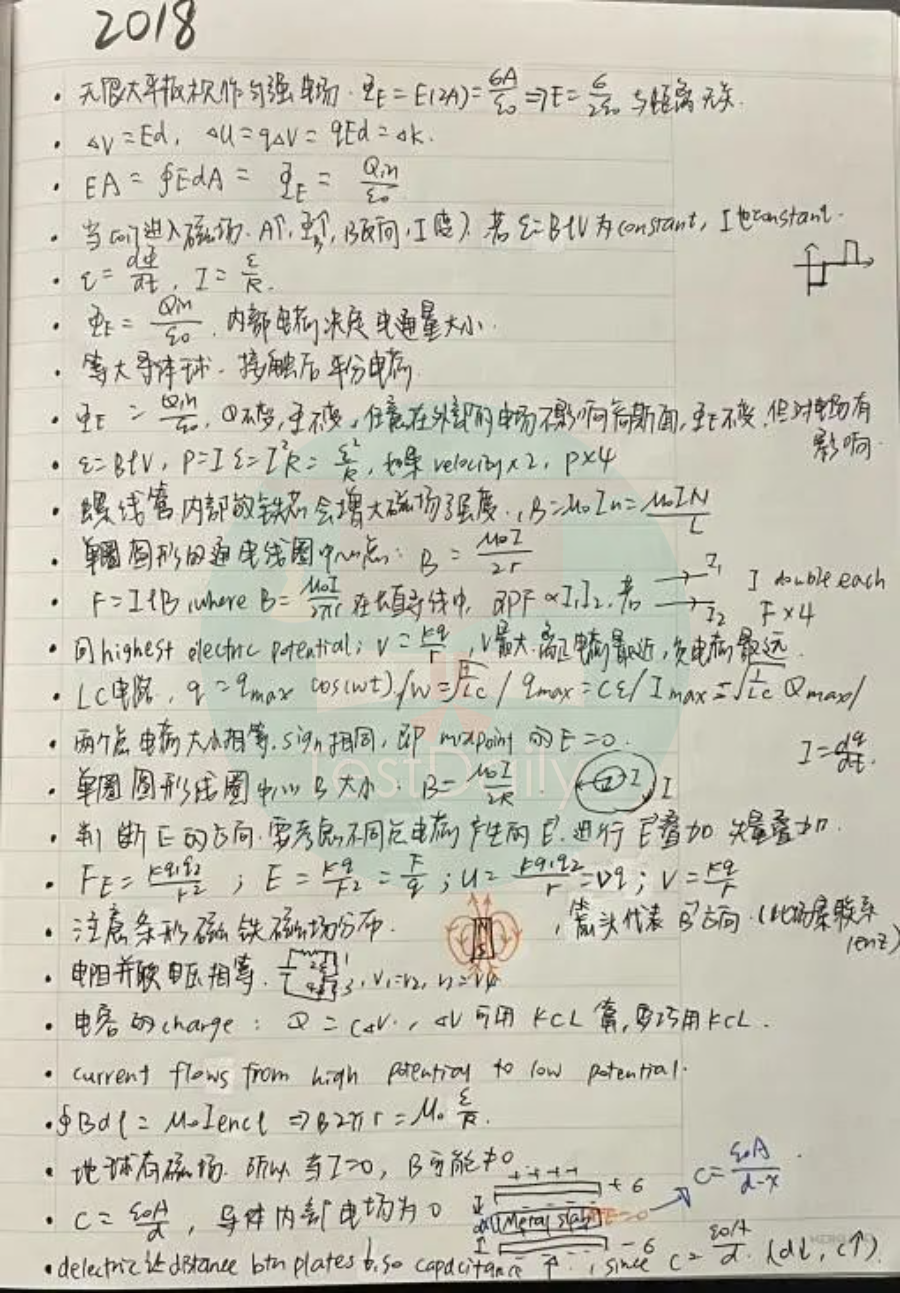 2018
• 无限大平板视作匀强电场. Φ_E = E(2A) = σA/ε₀ ⇒ E = σ/2ε₀ 与距离无关.
• ΔV = Ed, ΔU = qΔV = qEd = ΔK.
• EA = ∮EdA = Φ_E = Qin/ε₀
• 当coil进入磁场. A↑, Φ_B↑, B反向, I 若 ε=BℓV 为constant, I也constant.
• ε = dΦ/dt, I = ε/R.
• Φ_E = Qin/ε₀. 内部电荷决定电通量大小.
• 等大导体球. 接触后平分电荷
• Φ_E = Qin/ε₀, Q不变, Φ不变, 任意在外部的电场不影响 Φ_E不变, 但对电场有影响.
• ε=BℓV, P=Iε=I²R= ε²/R, 如果 velocity×2, P×4
• 螺线管内部放铁芯会增大磁场强度., B=μ₀In=μ₀IN/L
• 单圈圆形的通电线圈中心点: B = μ₀I/2r
• F=IℓB, where B=μ₀I/2πr 在长直导线中, 即F∝I₁I₂, 若 → I₁ → I₂ I double each F×4
• 问highest electric potential; V = kq/r, V最大. 离正电荷最近, 负电荷最远.
• LC电路, q = qmax cos(wt) / w=√1/LC / qmax=Cε / Imax=√1/LC Qmax/
I=dq/dt.
• 两个点电荷大小相等, sign相同, 即 midpoint 的E=0.
• 单圈圆形线圈中心B大小. B= μ₀I/2R I I
• 判断E的方向. 要考虑不同点电荷产生的E. 进行E叠加 矢量叠加.
• F_E = kq₁q₂/r² ; E = kq/r² = F/q ; U = kq₁q₂/r = Vq ; V = kq/r
• 注意条形磁铁磁场分布. N S , 箭头代表B方向. (此场景联系lenz)
• 电阻并联电压相等. 1 2 3 4, V₁=V₂, V₃=V₄
• 电容的charge: Q = CΔV., ΔV可用KCL算, 要巧用KCL.
• current flows from high potential to low potential.
• ∮Bdl = μ₀Iencl ⇒ B2πr = μ₀ ε/R.
• 地球有磁场. 所以当I=0, B可能≠0
++++ +σ
C = ε₀A/d-x
• C = ε₀A/d, 导体内部电场为0 Metal slab E=0
- - - -σ
• delectric让distance btn plates ↓, so capacitance ↑, since C = ε₀A/d. (d↓, C↑)